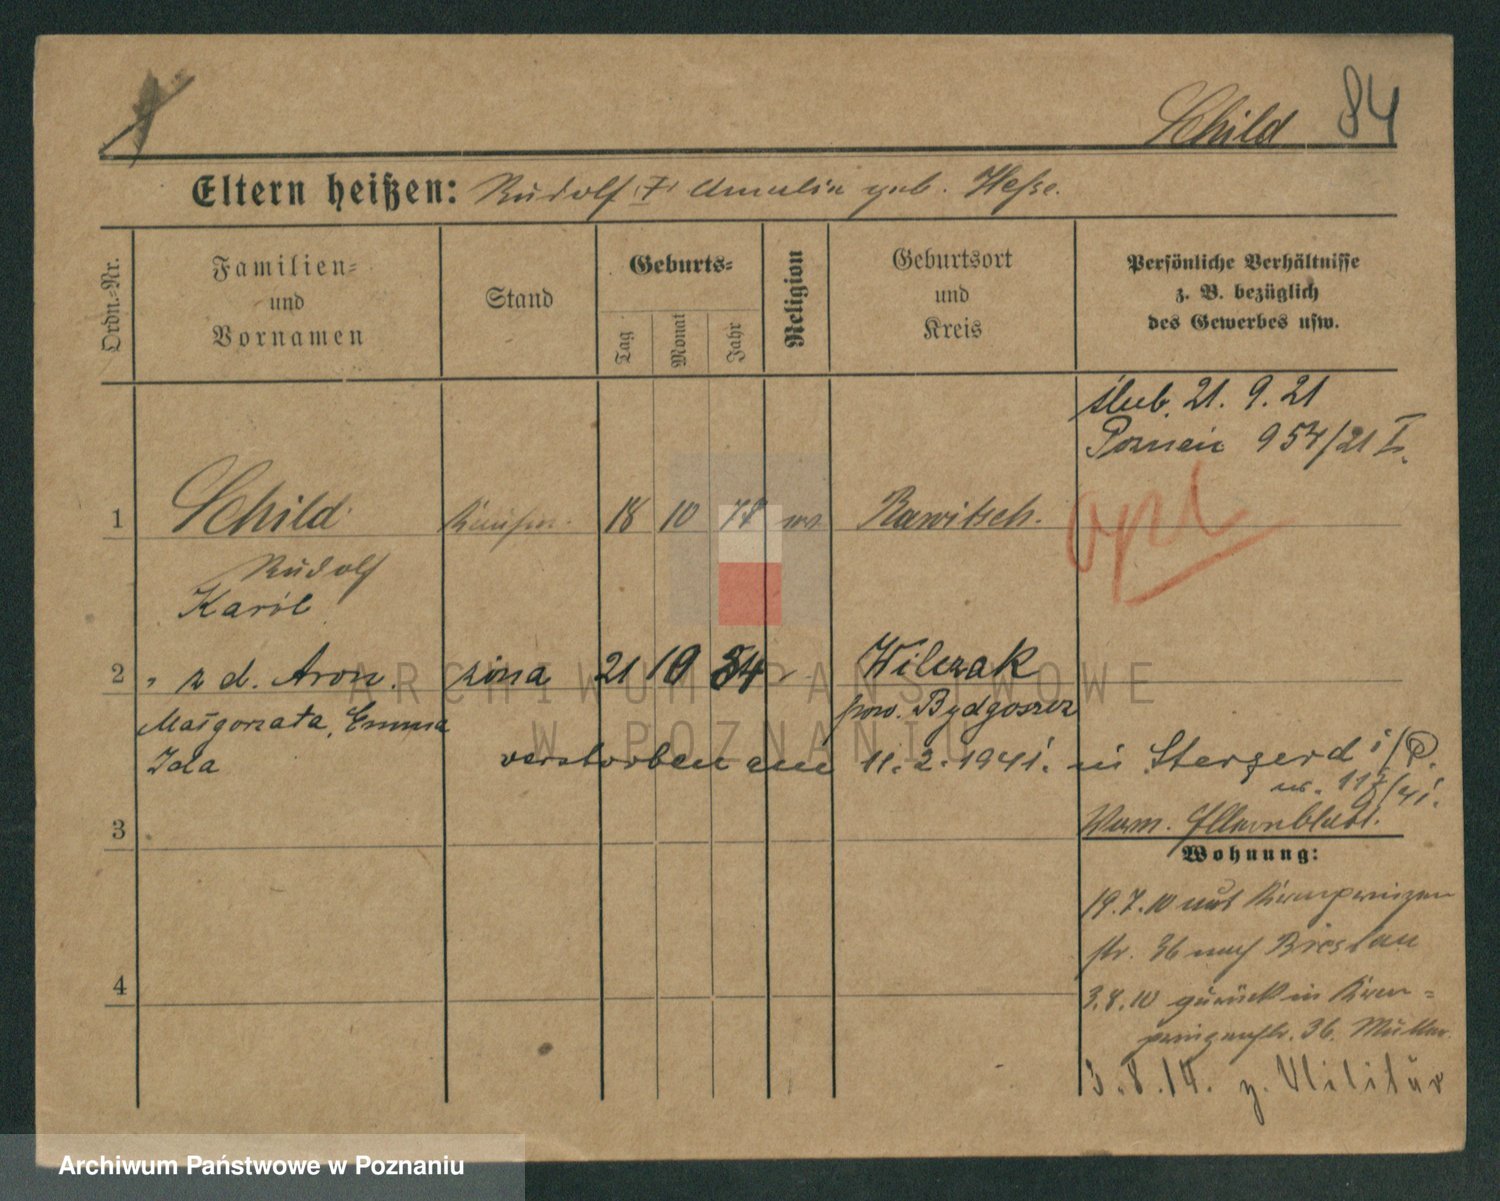 Schild 84
Eltern heißen: Rudolf, †, Amalia geb. Hesse.
Ordn.-Nr.
Familien-
und
Vornamen
Stand
Geburts-
Tag
Monat
Jahr
Religion
Geburtsort
und
Kreis
Persönliche Verhältnisse
z. B. bezüglich
des Gewerbes usw.
ślub 21. 9. 21
Poznań 954/21 I.
1 Schild Kaufm. 18 10 78 Rawitsch.
opt
Rudolf
Karol
2 " z d. Aron. żona 21 10 84 Wilczak
Małgorzata, Emma pow. Bydgoszcz
Ida verstorben am 11.2.1941. in
3
Wohnung:
19.7.10 Kronprinzen
str. 36 nach Breslau
4 3.8.10 zurück in Kron-
prinzenstr. 36.
3.8.14. z. Militär
ARCHIWUM PAŃSTWOWE
W POZNANIU
Archiwum Państwowe w Poznaniu